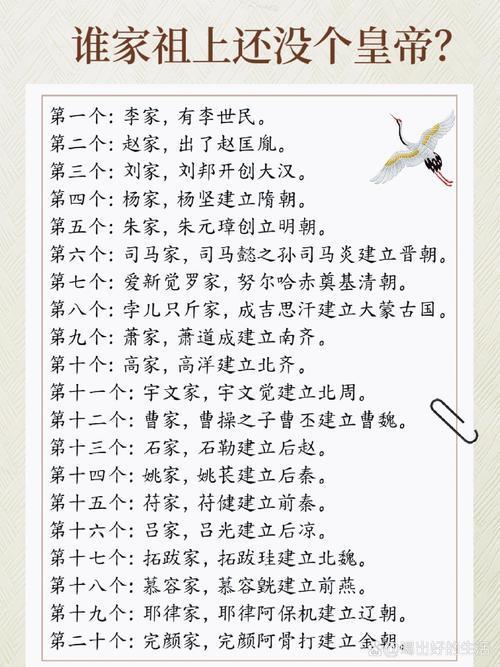 谁家祖上还没个皇帝？
第一个：李家，有李世民。
第二个：赵家，出了赵匡胤。
第三个：刘家，刘邦开创大汉。
第四个：杨家，杨坚建立隋朝。
第五个：朱家，朱元璋创立明朝。
第六个：司马家，司马懿之孙司马炎建立晋朝。
第七个：爱新觉罗家，努尔哈赤奠基清朝。
第八个：孛儿只斤家，成吉思汗建立大蒙古国。
第九个：萧家，萧道成建立南齐。
第十个：高家，高洋建立北齐。
第十一个：宇文家，宇文觉建立北周。
第十二个：曹家，曹操之子曹丕建立曹魏。
第十三个：石家，石勒建立后赵。
第十四个：姚家，姚苌建立后秦。
第十五个：苻家，苻健建立前秦。
第十六个：吕家，吕光建立后凉。
第十七个：拓跋家，拓跋珪建立北魏。
第十八个：慕容家，慕容皝建立前燕。
第十九个：耶律家，耶律阿保机建立辽朝。
第二十个：完颜家，完颜阿骨打建立金朝。